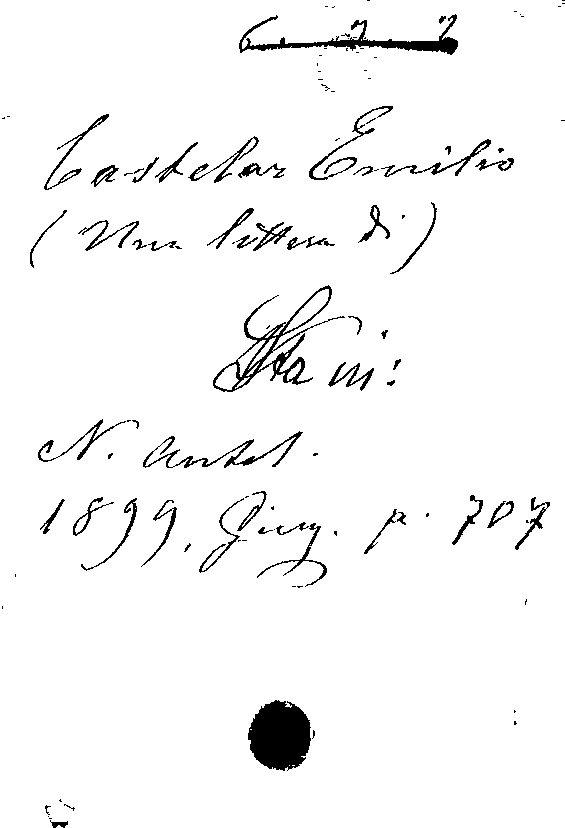 6.7.7
Castelar Emilio
(Una lettera di)
Sta in:
N. Antol.
1899, Giug. p. 707